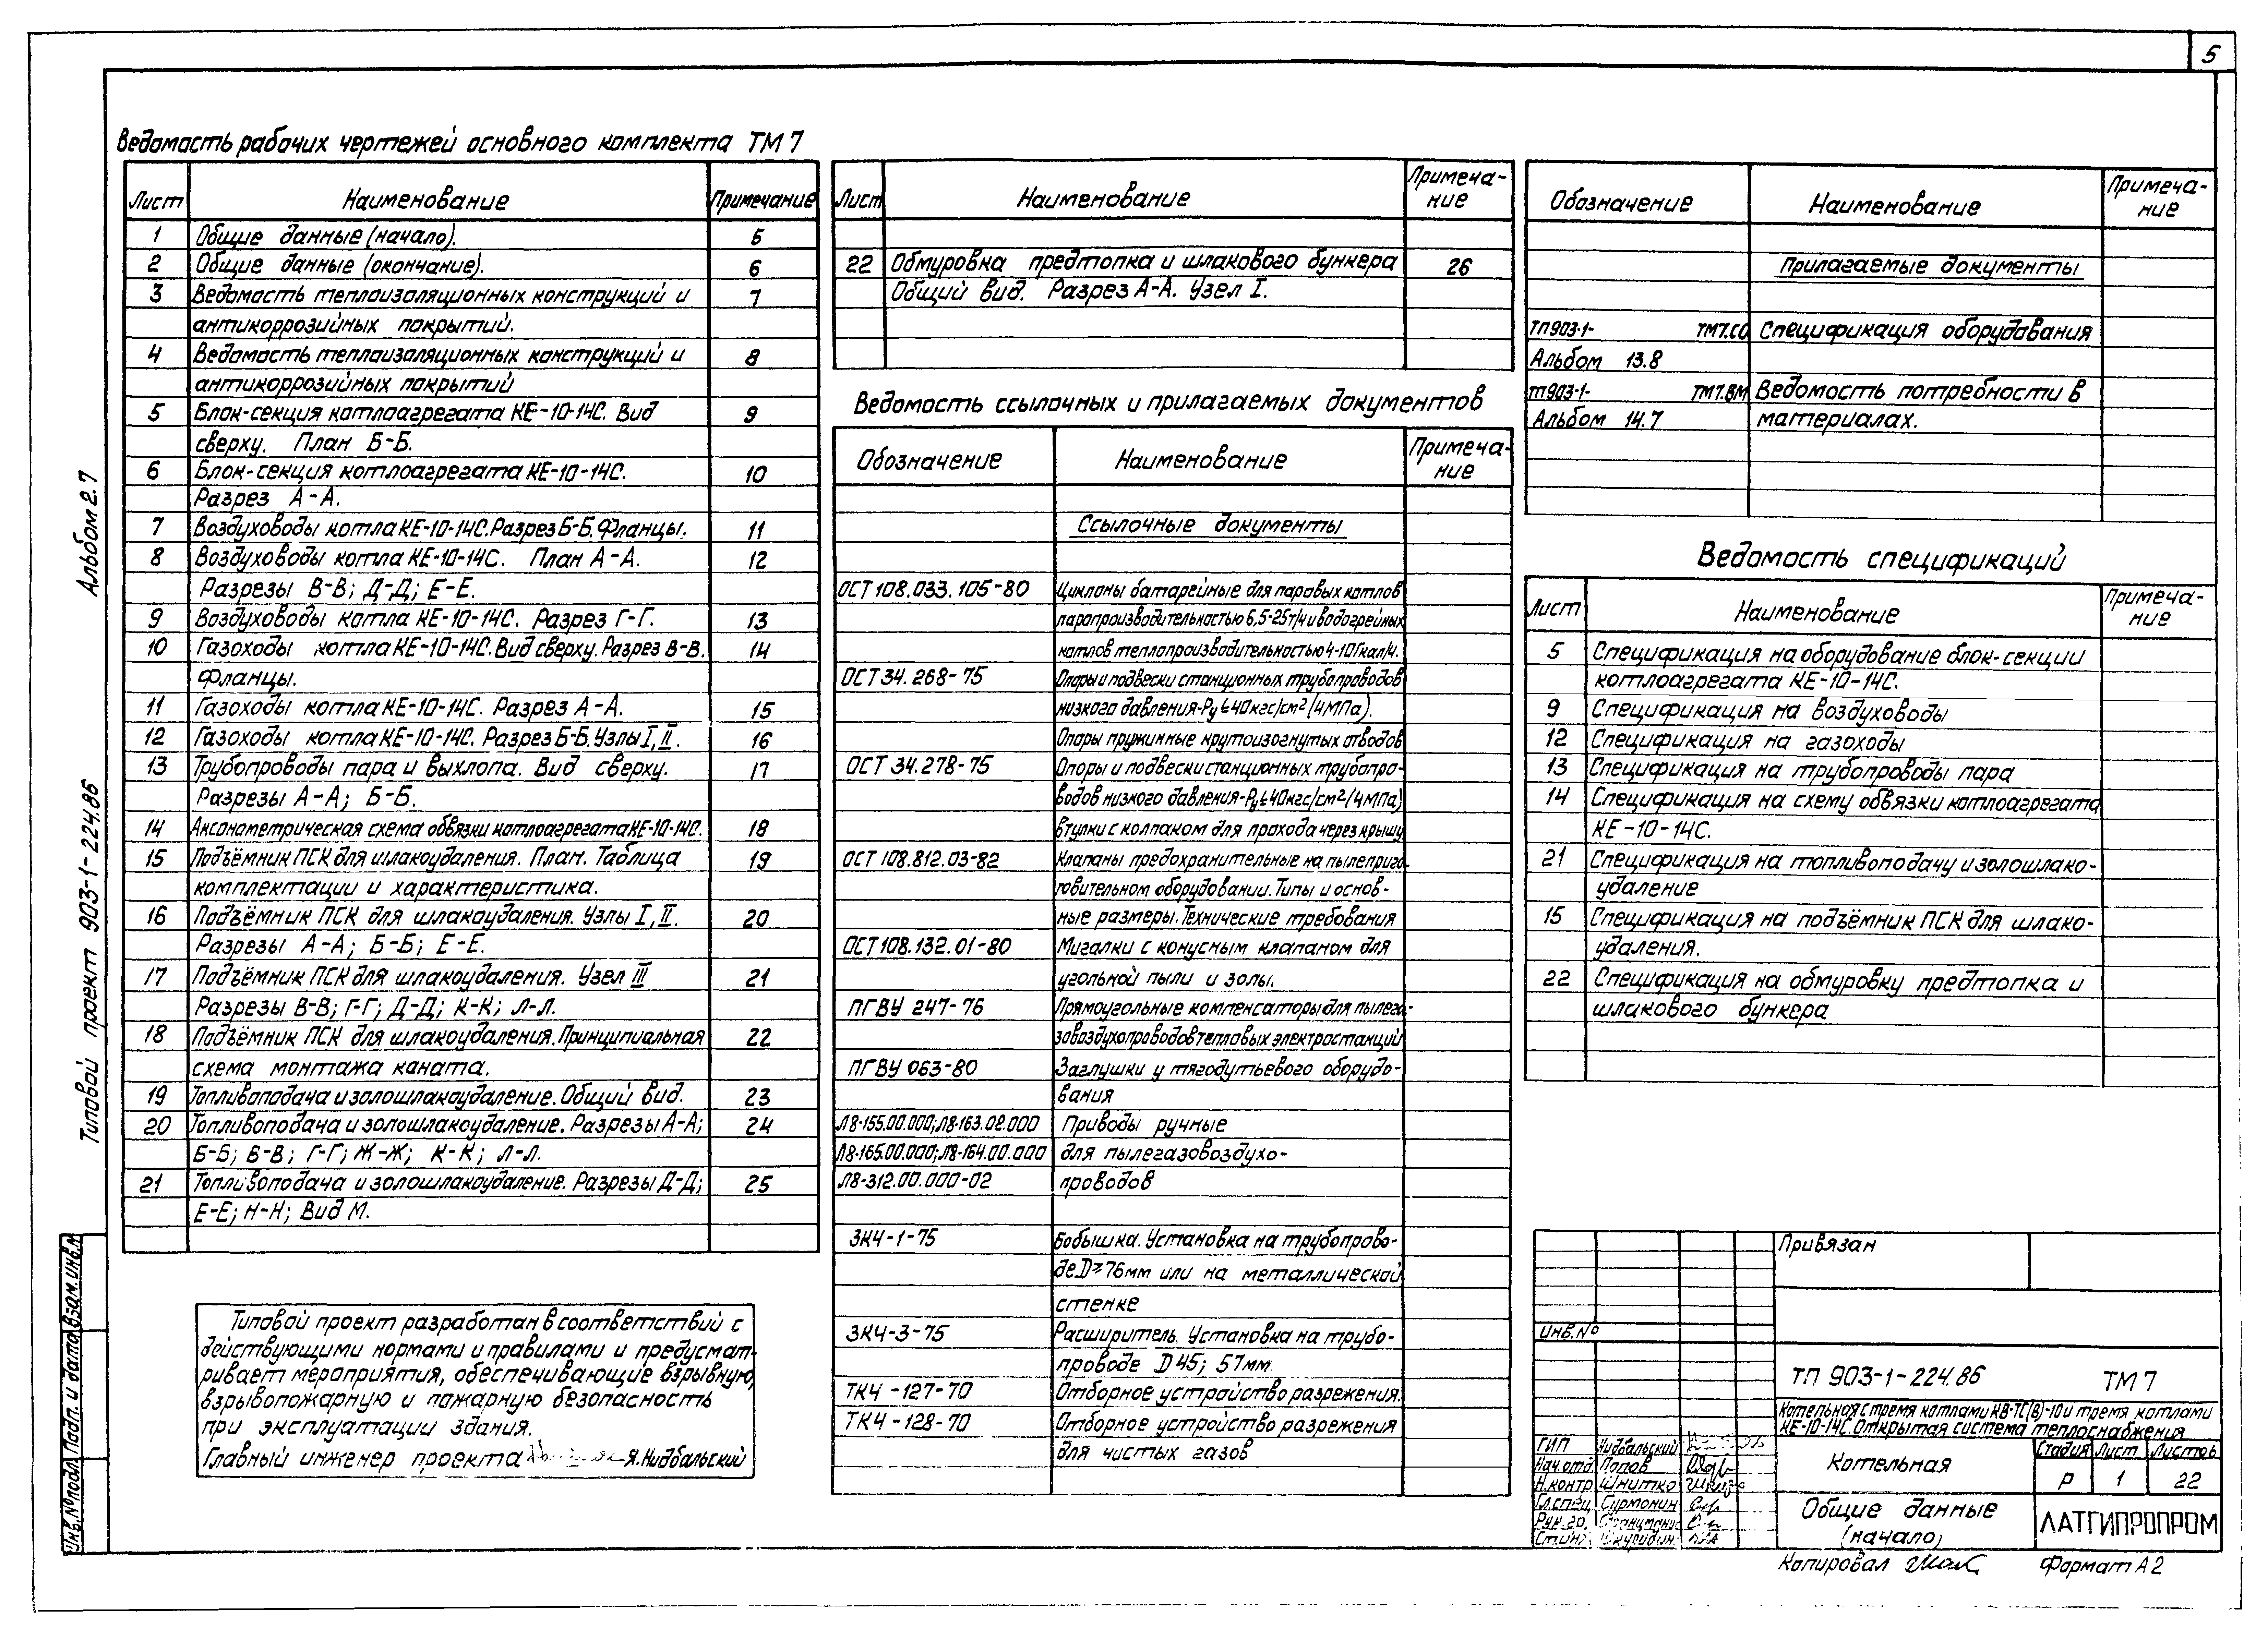 5
Ведомость рабочих чертежей основного комплекта ТМ 7
Лист Наименование Примечание
1 Общие данные (начало). 5
2 Общие данные (окончание). 6
3 Ведомость теплоизоляционных конструкций и 7
антикоррозийных покрытий.
4 Ведомость теплоизоляционных конструкций и 8
антикоррозийных покрытий
5 Блок-секция котлоагрегата КЕ-10-14С. Вид 9
сверху. План Б-Б.
6 Блок-секция котлоагрегата КЕ-10-14С. 10
Разрез А-А.
7 Воздуховоды котла КЕ-10-14С. Разрез Б-Б. Фланцы. 11
8 Воздуховоды котла КЕ-10-14С. План А-А. 12
Разрезы В-В; Д-Д; Е-Е.
9 Воздуховоды котла КЕ-10-14С. Разрез Г-Г. 13
10 Газоходы котла КЕ-10-14С. Вид сверху. Разрез В-В. 14
Фланцы.
11 Газоходы котла КЕ-10-14С. Разрез А-А. 15
12 Газоходы котла КЕ-10-14С. Разрез Б-Б. Узлы I, II. 16
13 Трубопроводы пара и выхлопа. Вид сверху. 17
Разрезы А-А; Б-Б.
14 Аксонометрическая схема обвязки котлоагрегата КЕ-10-14С. 18
15 Подъёмник ПСК для шлакоудаления. План. Таблица 19
комплектации и характеристика.
16 Подъёмник ПСК для шлакоудаления. Узлы I, II. 20
Разрезы А-А; Б-Б; Е-Е.
17 Подъёмник ПСК для шлакоудаления. Узел III 21
Разрезы В-В; Г-Г; Д-Д; К-К; Л-Л.
18 Подъёмник ПСК для шлакоудаления. Принципиальная 22
схема монтажа каната.
19 Топливоподача и золошлакоудаление. Общий вид. 23
20 Топливоподача и золошлакоудаление. Разрезы А-А; 24
Б-Б; В-В; Г-Г; Ж-Ж; К-К; Л-Л.
21 Топливоподача и золошлакоудаление. Разрезы Д-Д; 25
Е-Е; Н-Н; Вид М.
Типовой проект разработан в соответствий с
действующими нормами и правилами и предусмат-
ривает мероприятия, обеспечивающие взрывную,
взрывопожарную и пожарную безопасность
при эксплуатации здания.
Главный инженер проекта Я. Нидбальский
Лист Наименование Примеча-
ние
22 Обмуровка предтопка и шлакового бункера 26
Общий вид. Разрез А-А. Узел I.
Ведомость ссылочных и прилагаемых документов
Обозначение Наименование Примеча-
ние
Ссылочные документы
ОСТ 108.033.105-80 Циклоны батарейные для паровых котлов
паропроизводительностью 6,5-25т/ч и водогрейных
котлов теплопроизводительностью 4-10Гкал/ч.
ОСТ 34.268-75 Опоры и подвески станционных трубопроводов
низкого давления-Ру≤40кгс/см² (4МПа).
Опоры пружинные крутоизогнутых отводов
ОСТ 34.278-75 Опоры и подвески станционных трубопро-
водов низкого давления-Ру≤40кгс/см² (4МПа)
втулки с колпаком для прохода через крышу
ОСТ 108.812.03-82 Клапаны предохранительные на пылеприго-
товительном оборудовании. Типы и основ-
ные размеры. Технические требования
ОСТ 108.132.01-80 Мигалки с конусным клапаном для
угольной пыли и золы.
ПГВУ 247-76 Прямоугольные компенсаторы для пылега-
зовоздухопроводов тепловых электростанций
ПГВУ 063-80 Заглушки у тягодутьевого оборудо-
вания
Л8-155.00.000; Л8-163.02.000 Приводы ручные
Л8-165.00.000; Л8-164.00.000 для пылегазовоздухо-
Л8-312.00.000-02 проводов
ЗК4-1-75 Бобышка. Установка на трубопрово-
де D≥76мм или на металлической
стенке
ЗК4-3-75 Расширитель. Установка на трубо-
проводе D 45; 57мм.
ТК4-127-70 Отборное устройство разрежения.
ТК4-128-70 Отборное устройство разрежения
для чистых газов
Обозначение Наименование Примеча-
ние
Прилагаемые документы
ТП903-1- ТМ7.СО Спецификация оборудования
Альбом 13.8
ТП903-1- ТМ7.ВМ Ведомость потребности в
Альбом 14.7 материалах.
Ведомость спецификаций
Лист Наименование Примеча-
ние
5 Спецификация на оборудование блок-секции
котлоагрегата КЕ-10-14С.
9 Спецификация на воздуховоды
12 Спецификация на газоходы
13 Спецификация на трубопроводы пара
14 Спецификация на схему обвязки котлоагрегата
КЕ-10-14С.
21 Спецификация на топливоподачу и золошлако-
удаление
15 Спецификация на подъёмник ПСК для шлако-
удаления.
22 Спецификация на обмуровку предтопка и
шлакового бункера
Привязан
Инв. №
ТП 903-1-224.86 ТМ 7
Котельная с тремя котлами КВ-ТС(В)-10 и тремя котлами
КЕ-10-14С. Открытая система теплоснабжения
ГИП Нидбальский
Нач. отд Попов
Н. контр Шнитко
Гл. спец Сурмонин
Рук. гр.
Ст. инж
Котельная
Стадия Лист Листов
Р 1 22
Общие данные
(начало)
ЛАТГИПРОПРОМ
Копировал Формат А2
Типовой проект 903-1-224.86 Альбом 2.7
Инв. № подл. Подп. и дата Взам. инв. №